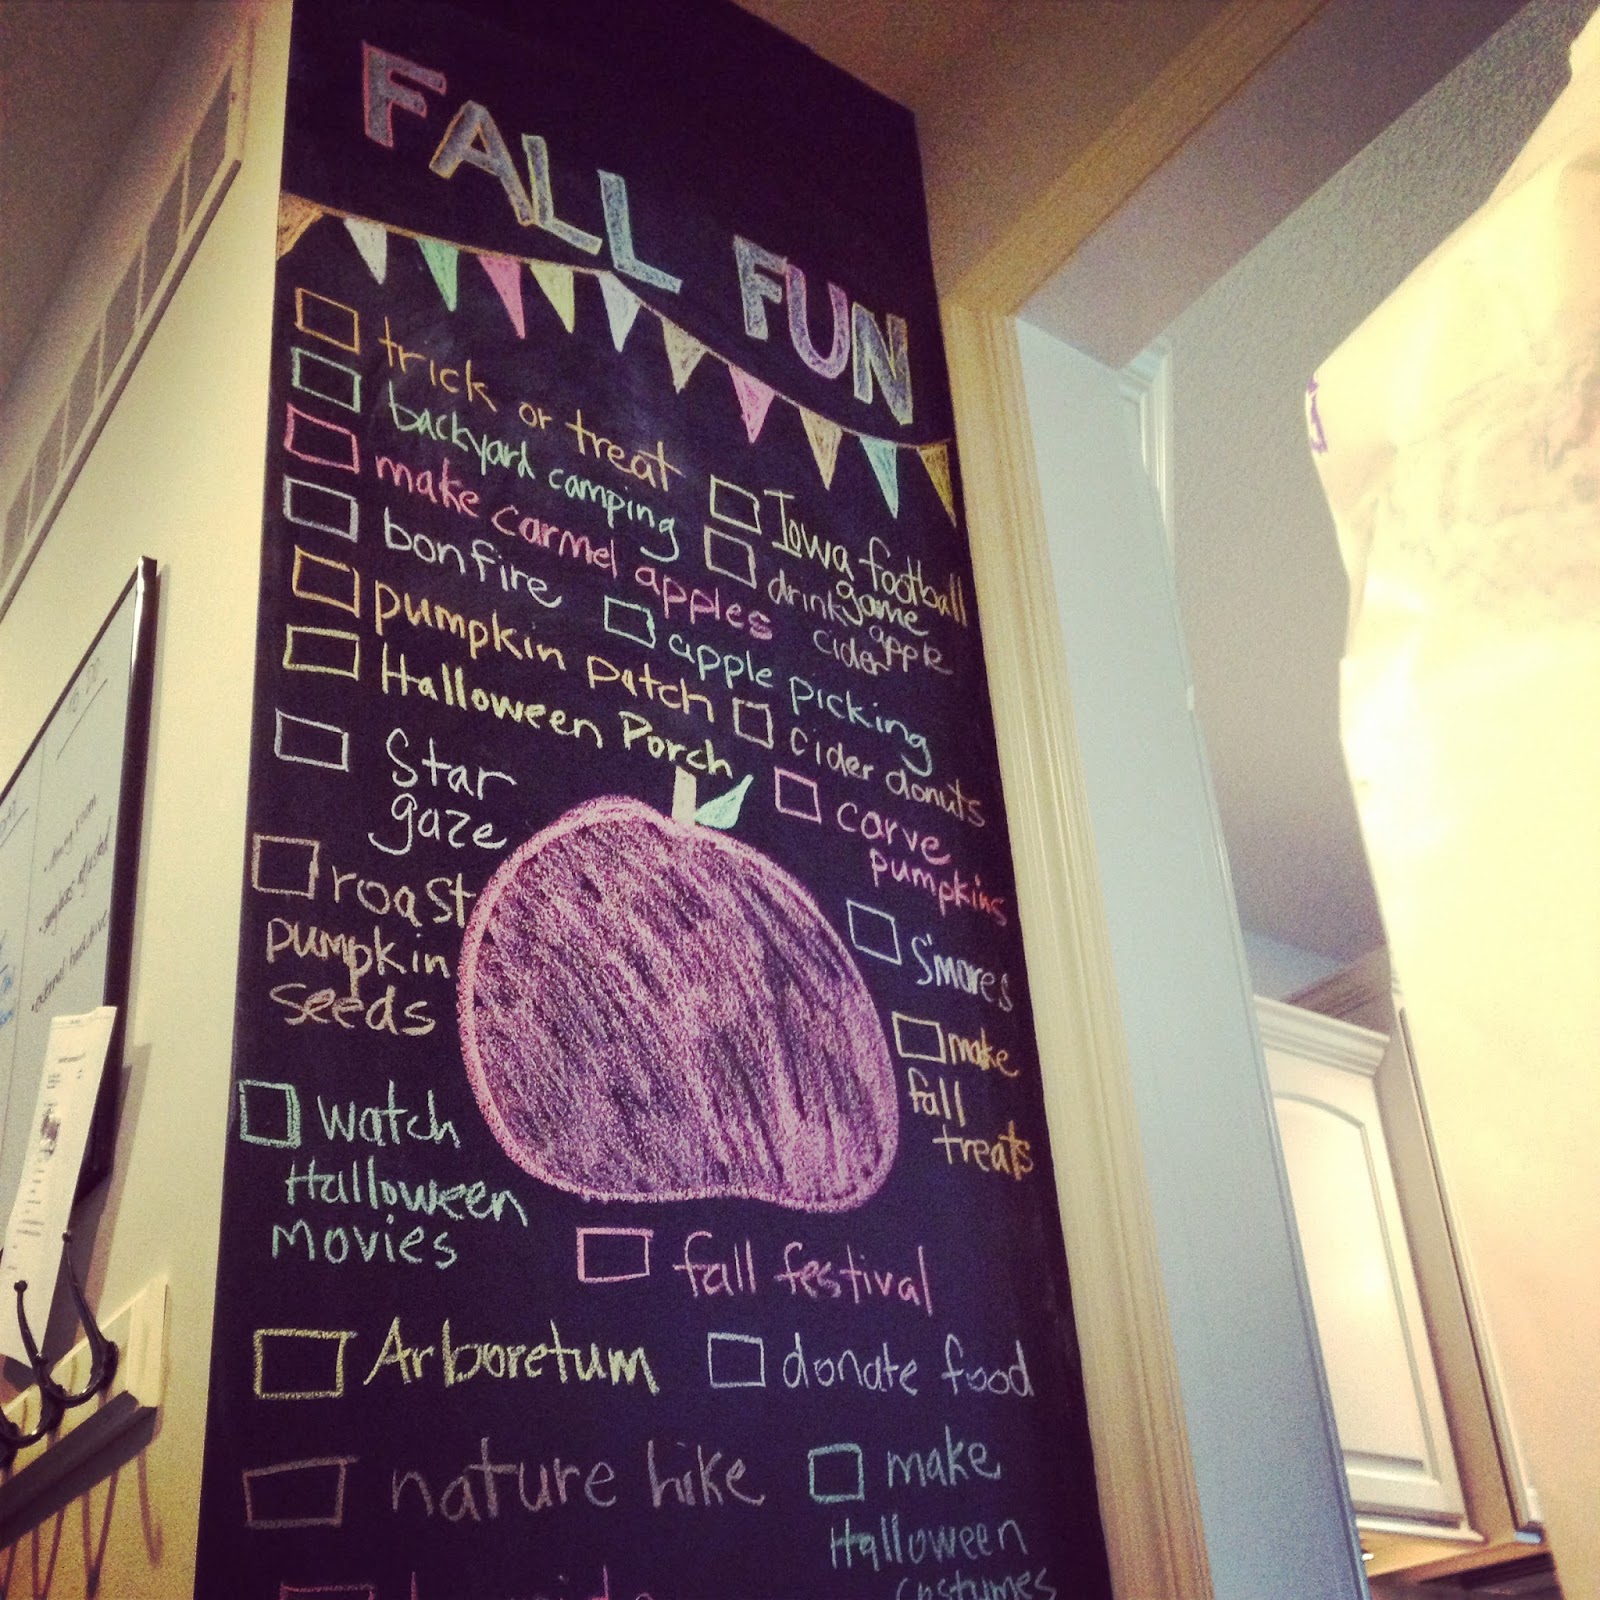 FALL FUN
trick or treat
backyard camping
make carmel apples
bonfire
pumpkin patch
Halloween Porch
Star
gaze
roast
pumpkin
seeds
watch
Halloween
movies
Arboretum
nature hike
Iowa football
game
drink apple
cider
apple picking
cider donuts
carve
pumpkins
S'mores
make
fall
treats
fall festival
donate food
make
Halloween
costumes